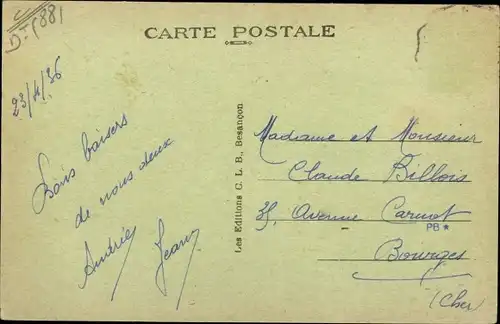 CARTE POSTALE
23/4/36
Bons baisers
de nous deux
Andrée Jean
Les Editions C. L. B., Besançon
Madame et Monsieur
Claude Billois
35, Avenue Carnot
PB *
Bourges
(Cher)